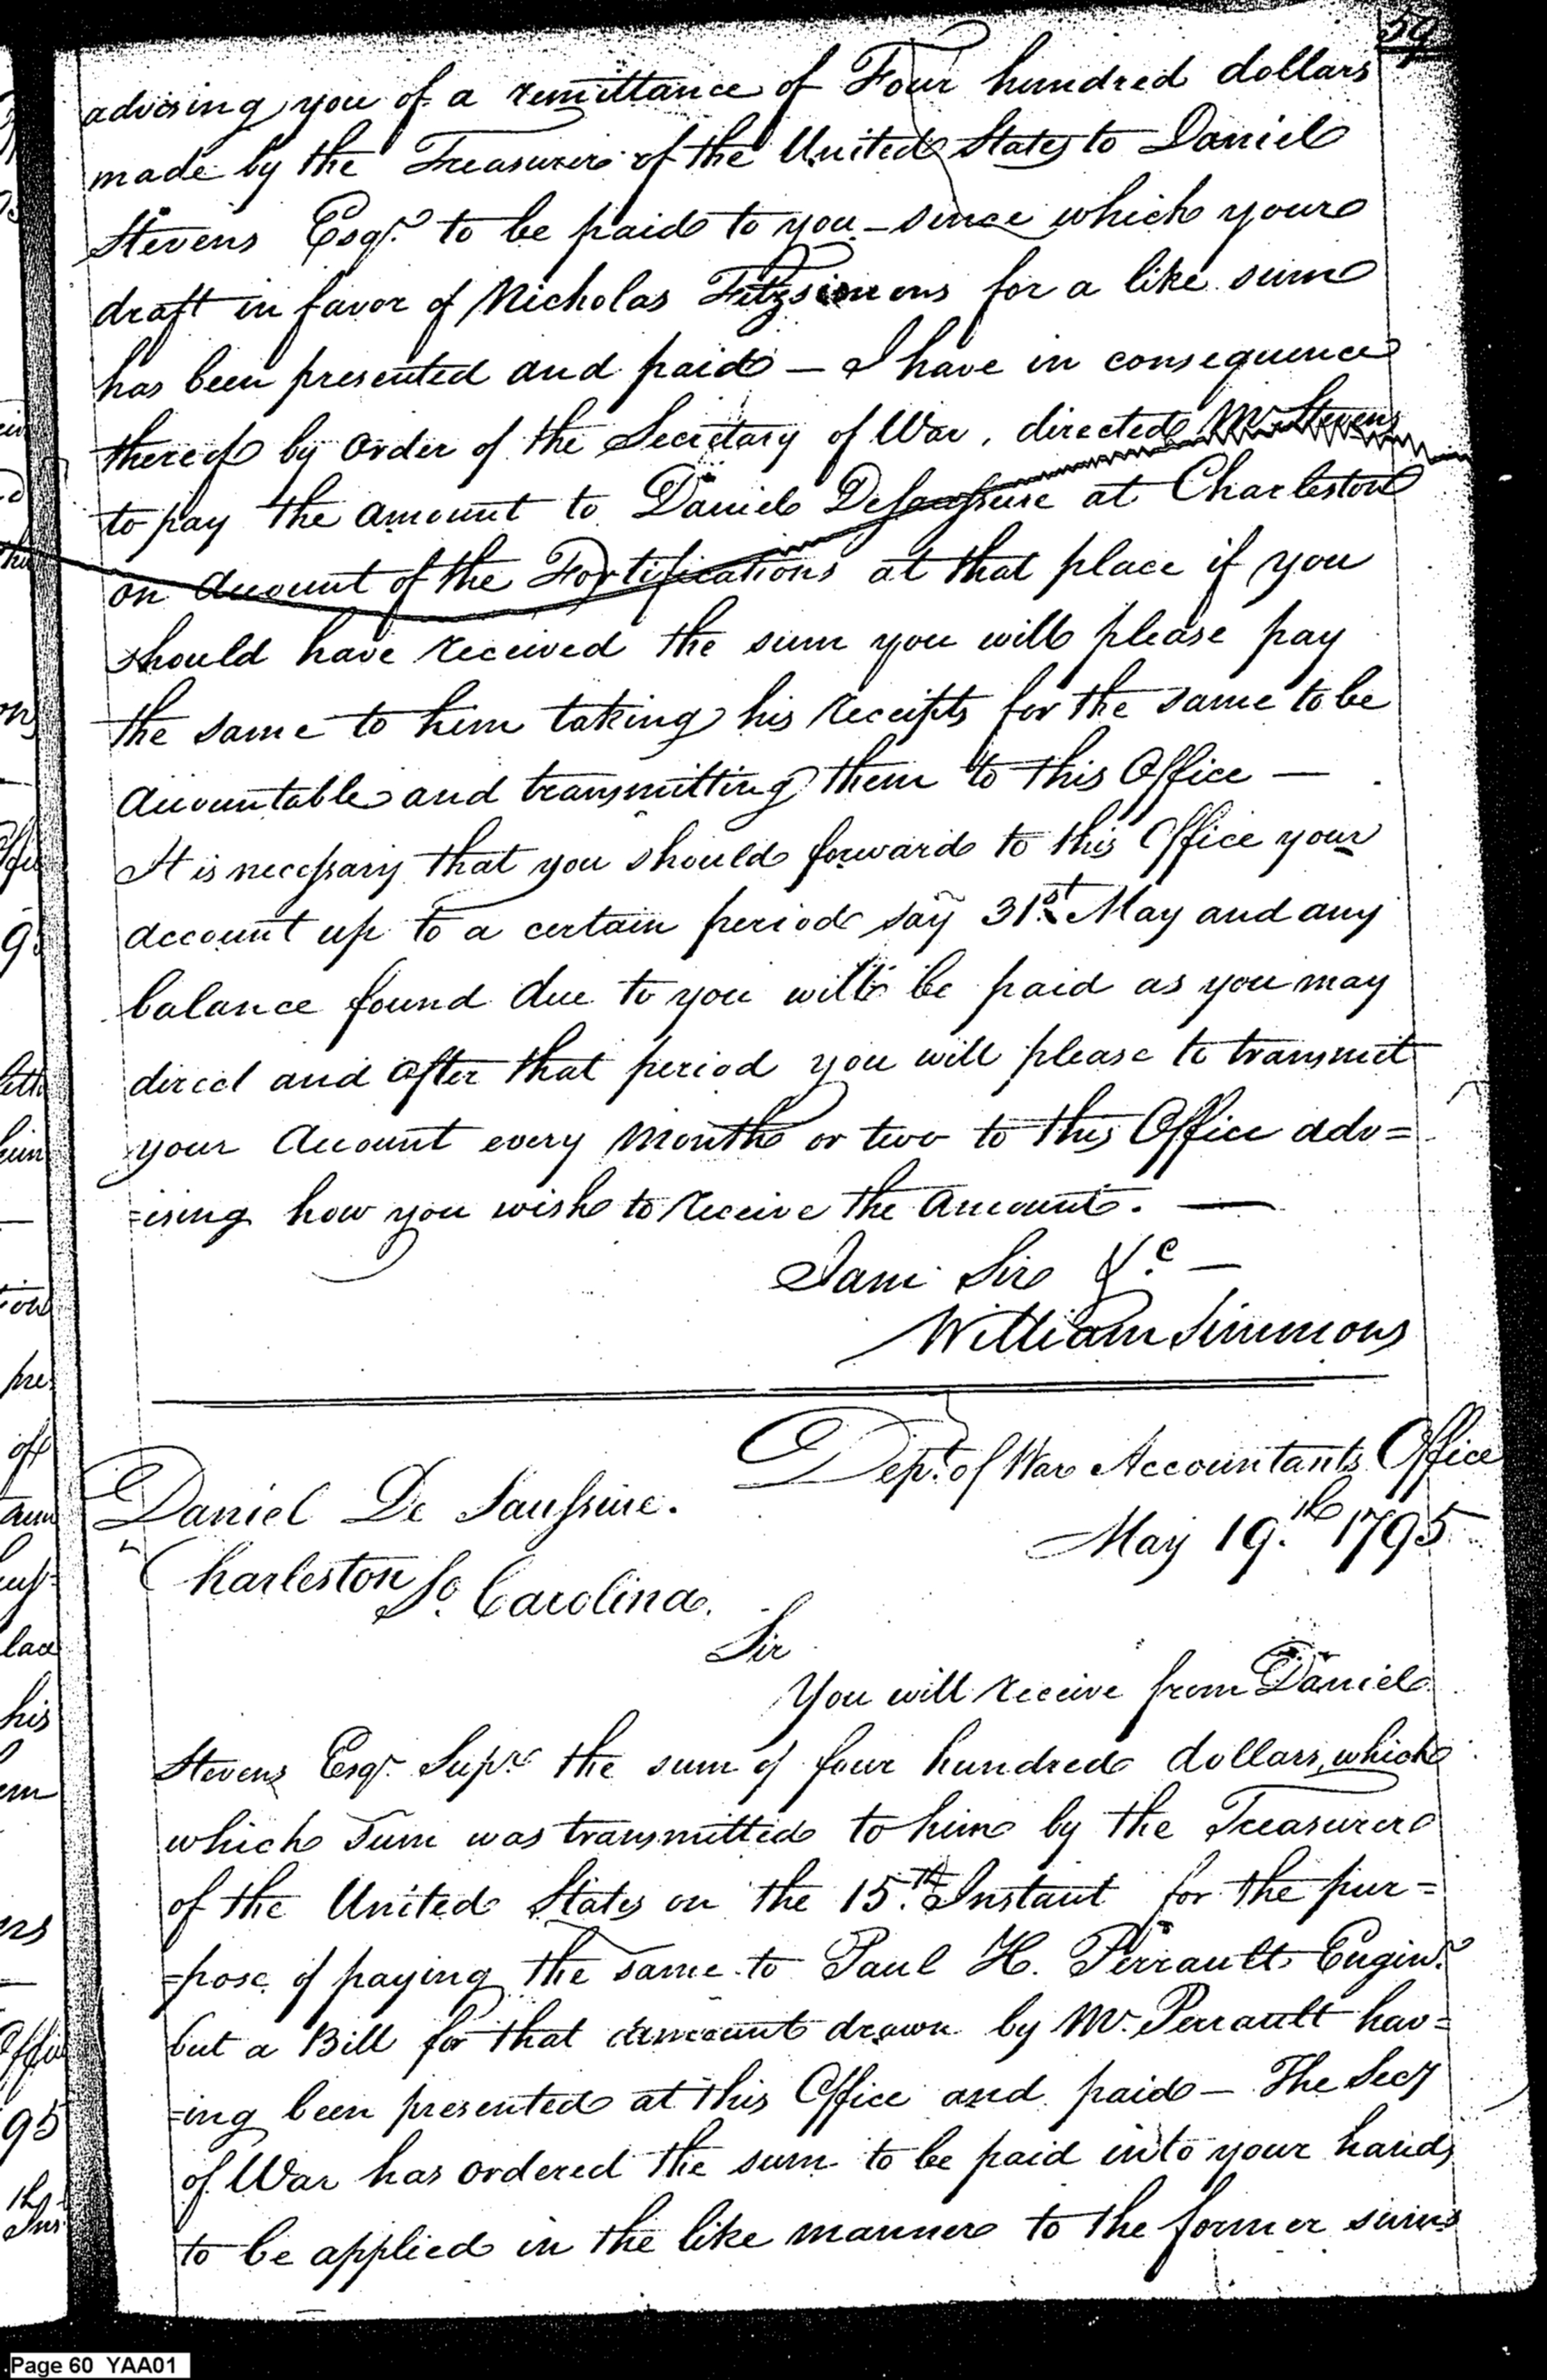 59
advising you of a remittance of Four hundred dollars
made by the Treasurer of the United States to Daniel
Stevens Esqr. to be paid to you – since which your
draft in favor of Nicholas Fitzsimons for a like sum
has been presented and paid – I have in consequence
thereof by order of the Secretary of War, directed Mr Stevens
to pay the amount to Daniel DeSaussure at Charleston
on Account of the Fortifications at that place if you
should have received the sum you will please pay
the same to him taking his receipts for the same to be
Accountable and transmitting them to this Office —
It is necessary that you should forward to this Office your
account up to a certain period say 31st May and any
balance found due to you will be paid as you may
direct and after that period you will please to transmit
your Account every month or two to this Office adv=
=ising how you wish to receive the Amount. —
I am Sir &c —
William Simmons
Dept. of War Accountants Office
May 19.th 1795
Daniel De Saussure.
Charleston So. Carolina.
Sir
You will receive from Daniel
Stevens Esqr. Supr. the sum of four hundred dollars, which
which sum was transmitted to him by the Treasurer
of the United States on the 15.th Instant for the pur=
=pose of paying the same to Paul H. Perrault Enginr.
but a Bill for that amount drawn by Mr. Perrault hav=
=ing been presented at this Office and paid – The Secy
of War has ordered the sum to be paid into your hands
to be applied in the like manner to the former sums
Page 60 YAA01